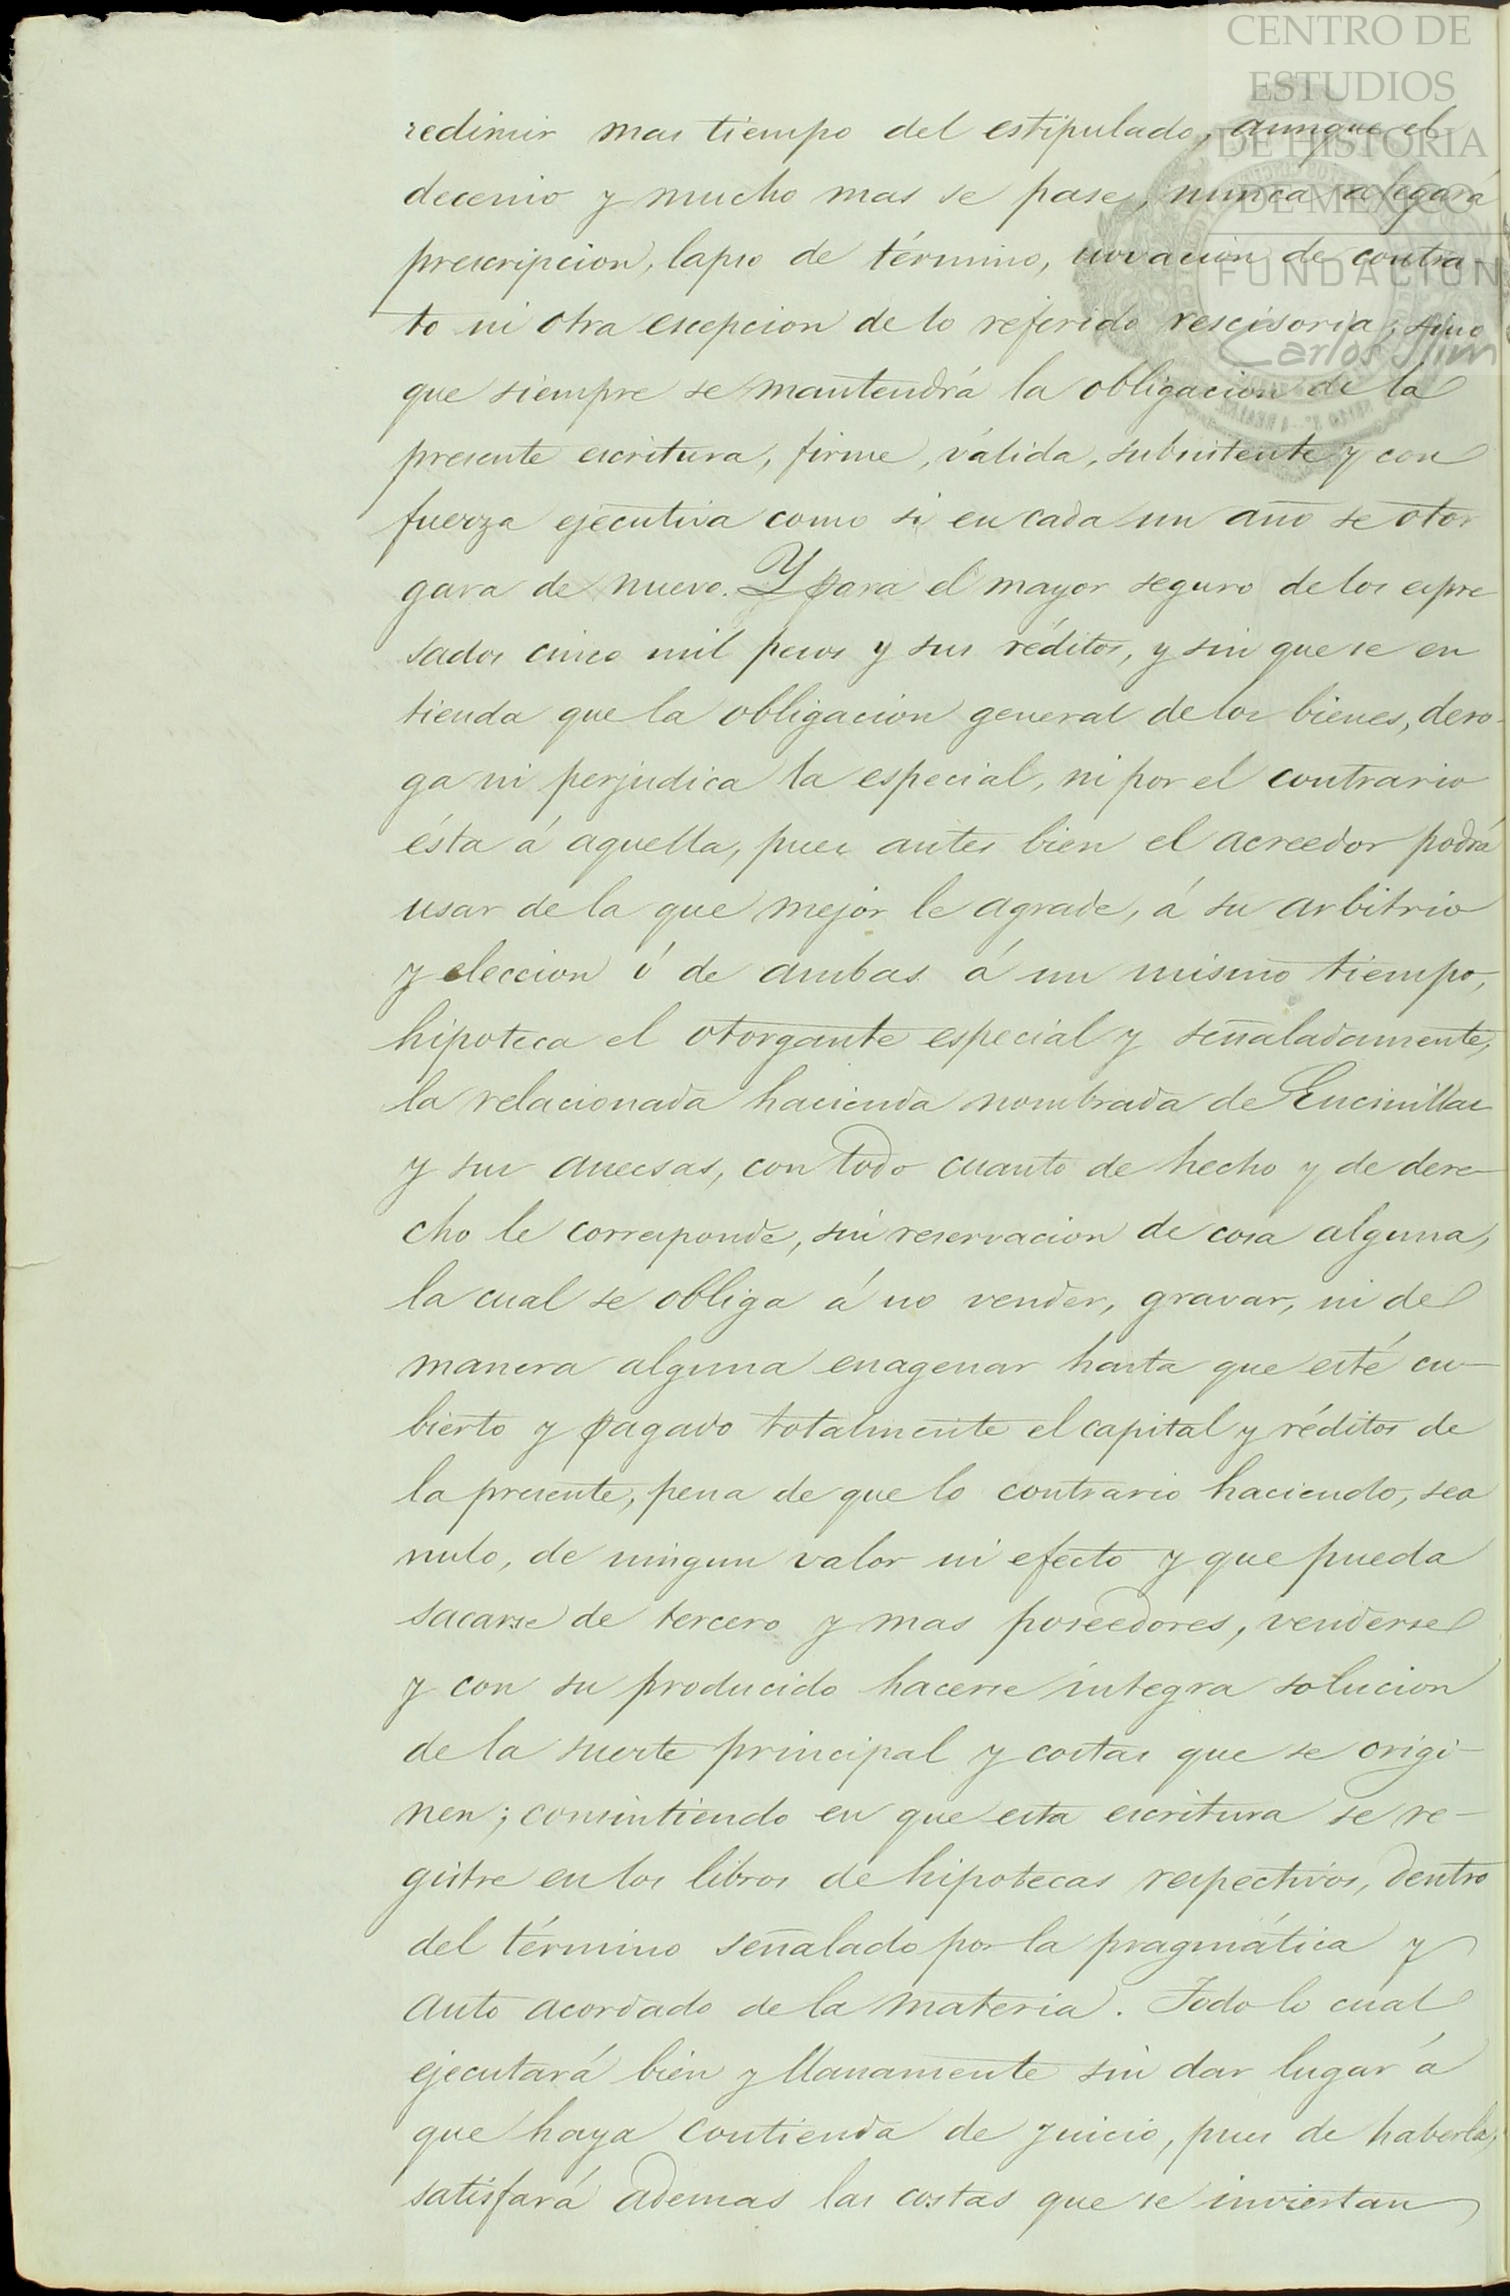 CENTRO DE
ESTUDIOS
DE HISTORIA
DE MEXICO
FUNDACION
Carlos Slim
redimir mas tiempo del estipulado, aunque el
decenio y mucho mas se pase, nunca alegará
prescripcion, lapso de término, novacion de contra-
to ni otra escepcion de lo referido rescisoria, sino
que siempre se mantendrá la obligacion de la
presente escritura, firme, válida, subsistente y con
fuerza ejecutiva como si en cada un año se otor
gara de nuevo. Y para el mayor seguro de los espre
sados cinco mil pesos y sus réditos, y sin que se en
tienda que la obligacion general de los bienes, dero-
ga ni perjudica la especial, ni por el contrario
ésta á aquella, pues antes bien el acreedor podrá
usar de la que mejor le agrade, á su arbitrio
y eleccion ó de ambas á un mismo tiempo,
hipoteca el otorgante especial y señaladamente,
la relacionada hacienda nombrada de Encinillas
y sus anecsas, con todo cuanto de hecho y de dere-
cho le corresponde, sin reservacion de cosa alguna,
la cual se obliga á no vender, gravar, ni de
manera alguna enagenar hasta que esté cu-
bierto y pagado totalmente el capital y réditos de
la presente, pena de que lo contrario haciendo, sea
nulo, de ningun valor ni efecto y que pueda
sacarse de tercero y mas poseedores, venderse
y con su producido hacerse íntegra solucion
de la suerte principal y costas que se origi-
nen; consintiendo en que esta escritura se re-
gistre en los libros de hipotecas respectivos, dentro
del término señalado por la pragmática y
auto acordado de la materia. Todo lo cual
ejecutará bien y llanamente sin dar lugar á
que haya contienda de juicio, pues de haberla,
satisfará ademas las costas que se inviertan